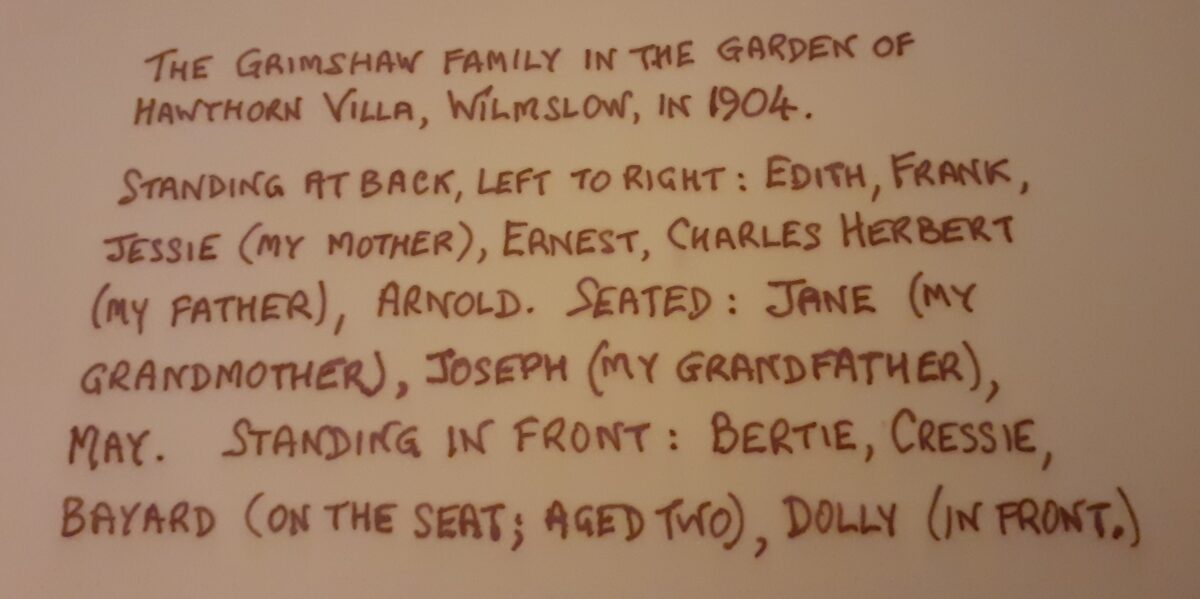 THE GRIMSHAW FAMILY IN THE GARDEN OF
HAWTHORN VILLA, WILMSLOW, IN 1904.
STANDING AT BACK, LEFT TO RIGHT: EDITH, FRANK,
JESSIE (MY MOTHER), ERNEST, CHARLES HERBERT
(MY FATHER), ARNOLD. SEATED: JANE (MY
GRANDMOTHER), JOSEPH (MY GRANDFATHER),
MAY. STANDING IN FRONT: BERTIE, CRESSIE,
BAYARD (ON THE SEAT; AGED TWO), DOLLY (IN FRONT.)